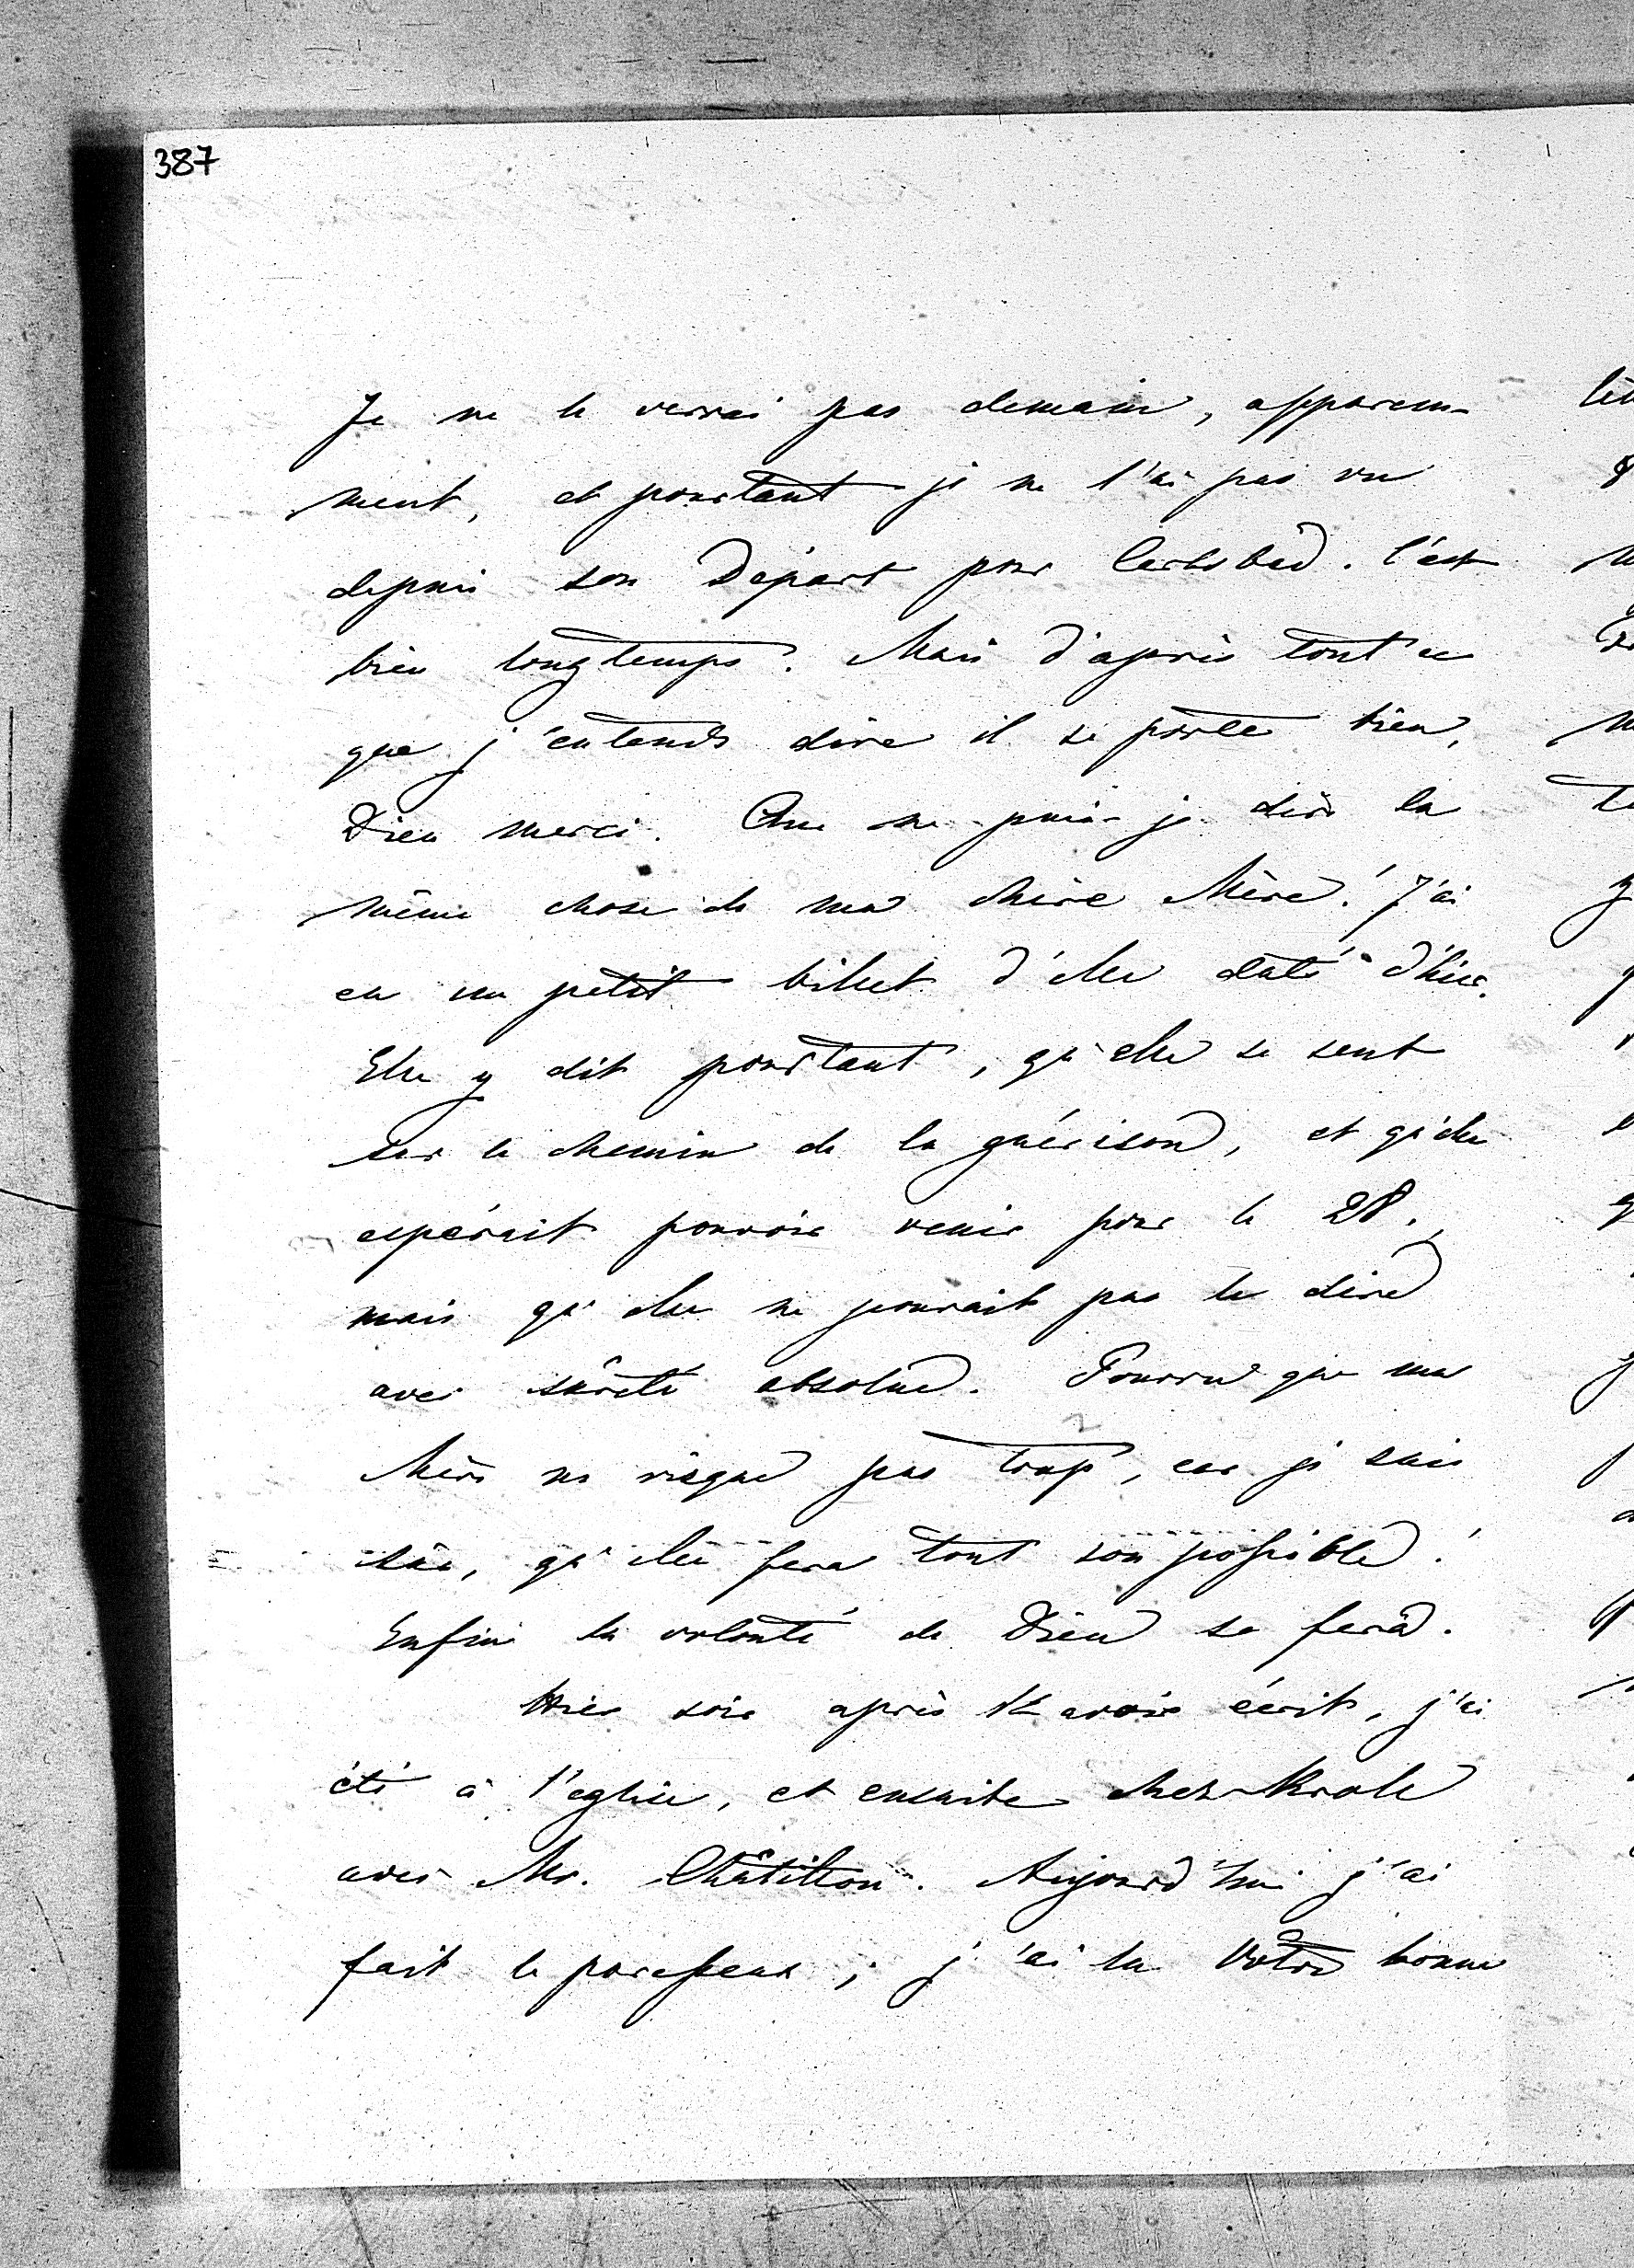 387
Je ne le verrai pas demain, apparem-
ment, et pourtant je ne l'ai pas vu
depuis son départ pour Carlsbad. C'est
bien longtemps. Mais d'après tout ce
que j'entends dire il se porte bien,
Dieu merci. Que ne puis-je dire la
même chose de ma chère Mère! J'ai
eu un petit billet d'elle daté d'hier.
Elle y dit pourtant, qu'elle se sent
sur le chemin de la guérison, et qu'elle
espérait pouvoir venir pour le 28.,
mais qu'elle ne pouvait pas le dire
avec sûreté absolue. Pourvu que ma
Mère ne risque pas trop, car je suis
sûr, qu'elle fera tout son possible!
Enfin la volonté de Dieu se fera.
Hier soir après t'avoir écrit, j'ai
été à l'eglise, et ensuite chez Krole
avec Mr. Châtillon. Aujourd'hui j'ai
fait le paresseux; j'ai lu Votre bonne